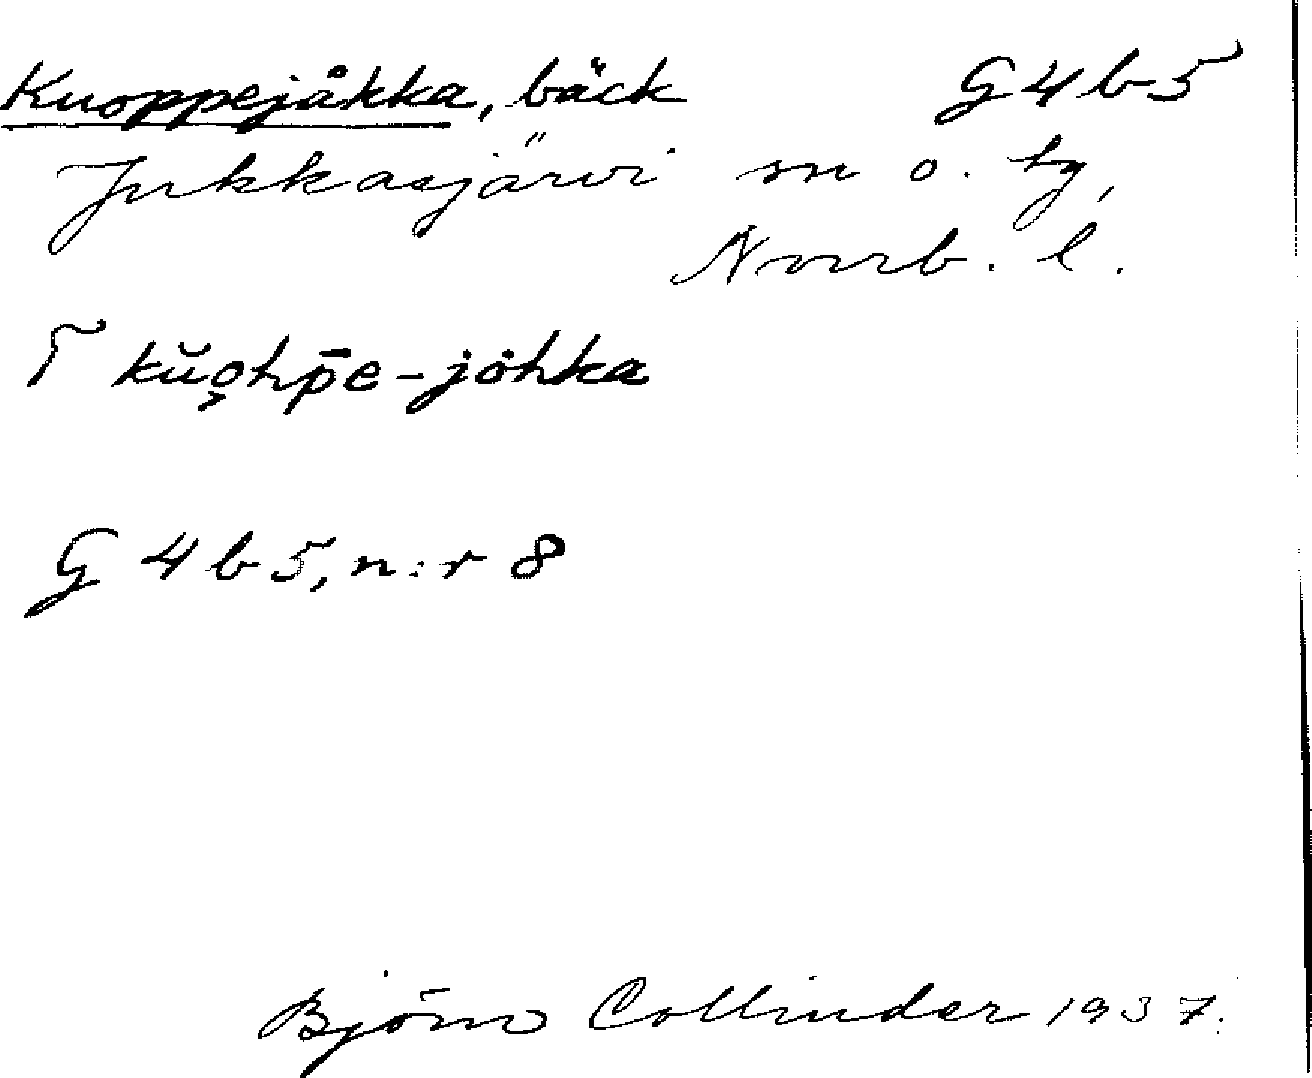 Kuoppejåkka, bäck G4b5
Jukkasjärvi sn o. tg,
Norrb. l.
Γ kŭo̧hp̄e-jȯhka
G 4 b 5, n:r 8
Björn Collinder 1937.